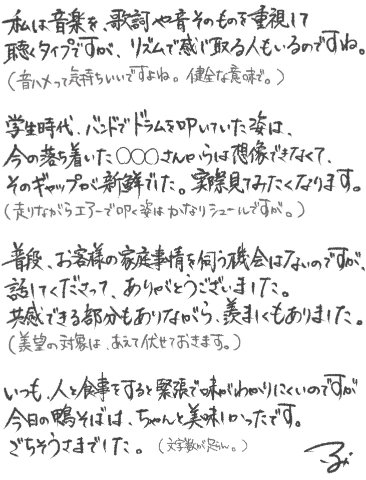 私は音楽を、歌詞や音そのものを重視して
聴くタイプですが、リズムで感じ取る人もいるのですね。
(音ハメって気持ちいいですよね。健全な意味で。)
学生時代、バンドでドラムを叩いていた姿は、
今の落ち着いた〇〇〇さんからは想像できなくて、
そのギャップが新鮮でした。実際見てみたくなります。
(走りながらエアーで叩く姿はかなりシュールですが。)
普段、お客様の家庭事情を伺う機会はないのですが、
話してくださって、ありがとうございました。
共感できる部分もありながら、羨ましくもありました。
(羨望の対象は、あえて伏せておきます。)
いつも、人と食事をすると緊張で味がわかりにくいのですが
今日の鴨そばは、ちゃんと美味しかったです。
ごちそうさまでした。(文字数が足らん。)